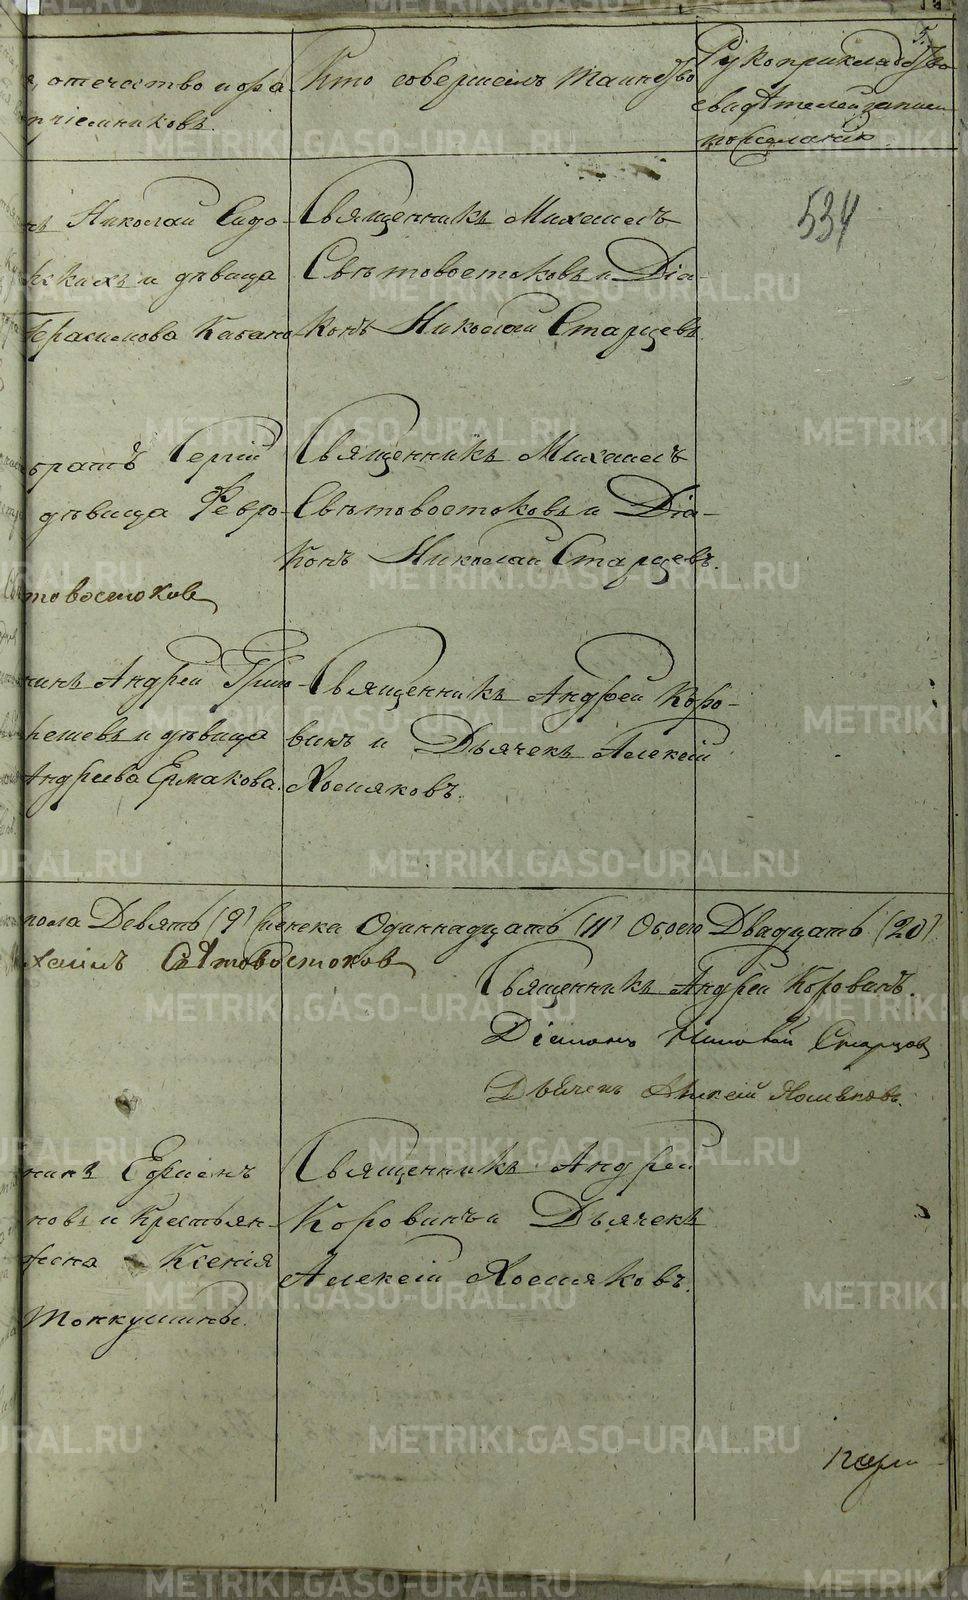 5.
отчество и фа-
пріемниковъ.
Кто совершилъ таинство
Рукоприкладство
свидѣтелей записи
по желанію
534
Николай Сидо-
и дѣвица
Герасимова Кабано-
Священникъ Михаилъ
Свѣтовостоковъ и Діа-
конъ Николай Старцевъ.
братъ Сергій
дѣвица Февро-
товостокова
Священникъ Михаилъ
Свѣтовостоковъ и Діа-
конъ Николай Старцевъ.
нинъ Андрей Григо-
и дѣвица
Андреева Ермакова.
Священникъ Андрей Коро-
винъ и Дьячекъ Алексій
Хомяковъ.
пола Девять (9) женска Одиннадцать (11) Обоего Двадцать (20)
хаилъ Свѣтовостоковъ
Священникъ Андрей Коровинъ.
Діаконъ Николай Старцов
Дьячекъ Алексій Хомяковъ.
нинъ Ефимъ
новъ и Крестьян-
жена Ксенія
Токкушины.
Священникъ Андрей
Коровинъ и Дьячекъ
Алексій Хомяковъ.
METRIKI.GASO-URAL.RU